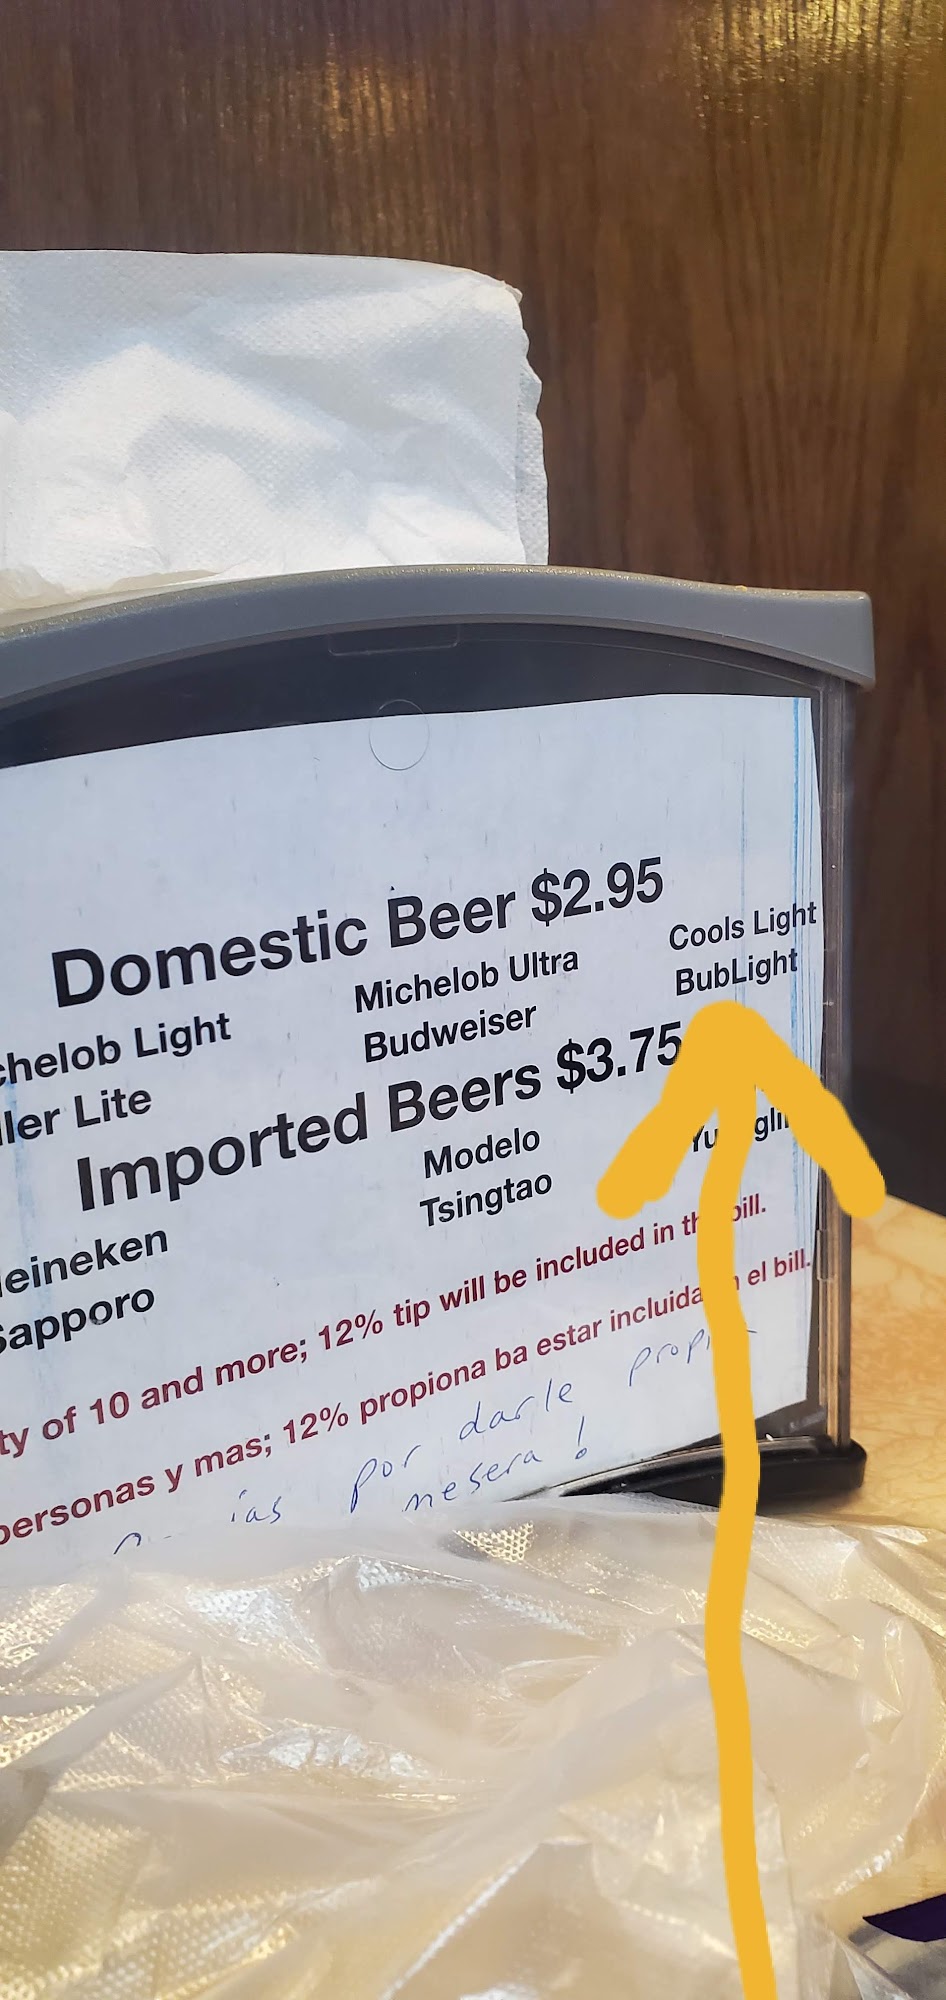 Domestic Beer $2.95
chelob Light Michelob Ultra Cools Light
ller Lite Budweiser BubLight
Imported Beers $3.75
eineken Modelo
Sapporo Tsingtao
ty of 10 and more; 12% tip will be included in the bill.
personas y mas; 12% propiona ba estar incluida el bill.
por darle
mesera!